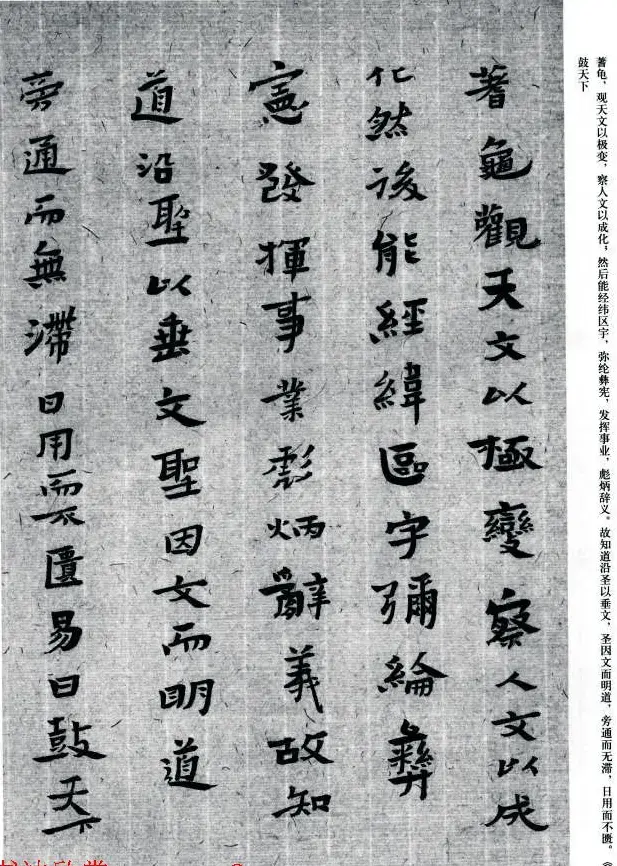 蓍龟，观天文以极变，察人文以成化；然后能经纬区宇，弥纶彝宪，发挥事业，彪炳辞义。故知道沿圣以垂文，圣因文而明道，旁通而无滞，日用而不匮。《
鼓天下
蓍龜觀天文以極變察人文以成
化然後能經緯區宇彌綸彝
憲發揮事業彪炳辭義故知
道沿聖以垂文聖因文而明道
旁通而無滯日用而不匱易曰鼓天下